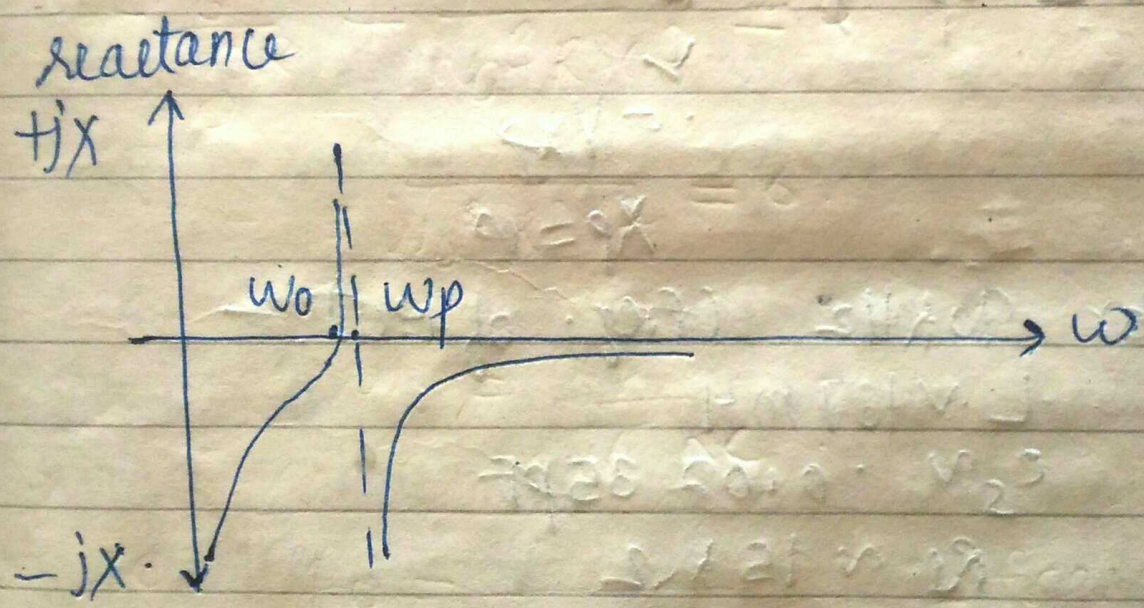 reactance
+jX
ωo ωp
ω
-jX